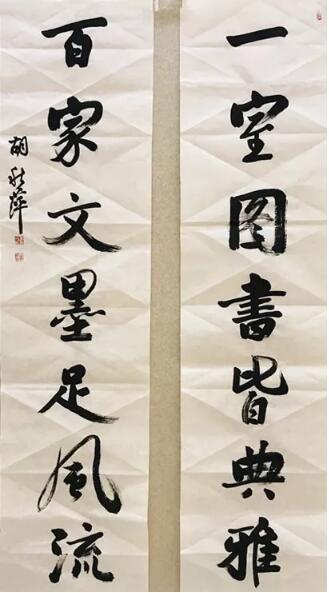 一室图书皆典雅
百家文墨足风流
胡秋萍